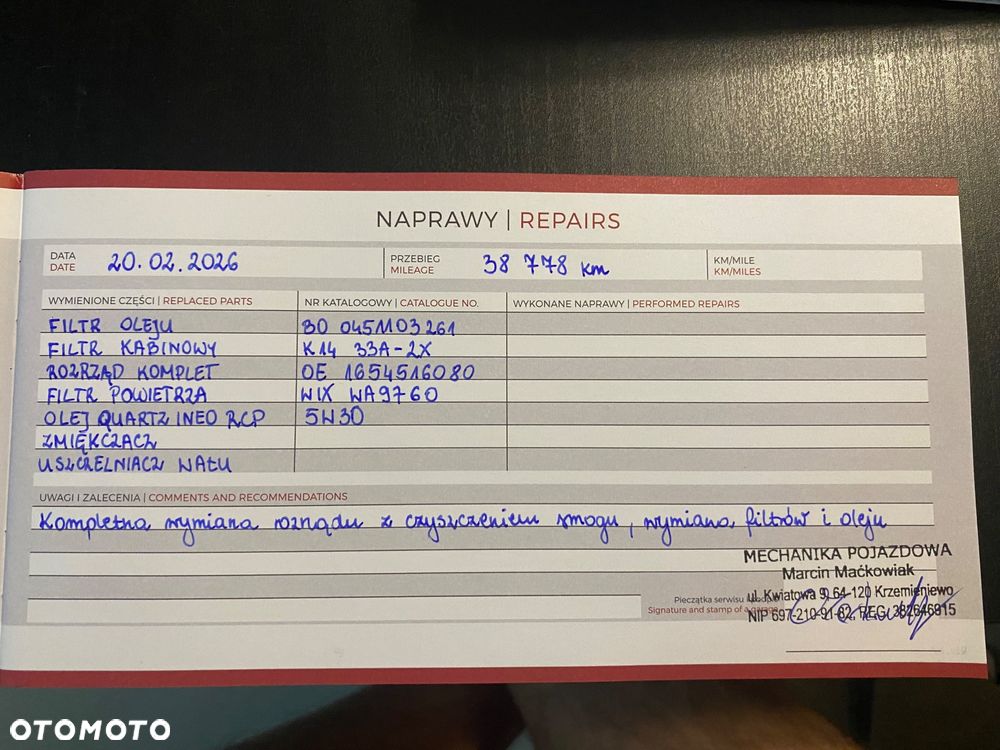 NAPRAWY | REPAIRS
DATA
DATE
20.02.2026
PRZEBIEG
MILEAGE
38 778 km
KM/MILE
KM/MILES
WYMIENIONE CZĘŚCI | REPLACED PARTS
NR KATALOGOWY | CATALOGUE NO.
WYKONANE NAPRAWY | PERFORMED REPAIRS
FILTR OLEJU BO 0451103261
FILTR KABINOWY K14 33A-2X
ROZRZĄD KOMPLET OE 1654516080
FILTR POWIETRZA WIX WA9760
OLEJ QUARTZ INEO RCP 5W30
ZMIĘKCZACZ
USZCZELNIACZ WAŁU
UWAGI I ZALECENIA | COMMENTS AND RECOMMENDATIONS
Kompletna wymiana rozrządu z czyszczeniem smogu, wymiana filtrów i oleju
MECHANIKA POJAZDOWA
Marcin Maćkowiak
ul. Kwiatowa 9, 64-120 Krzemieniewo
NIP 697-210-91-62, REG. 382646915
Pieczątka serwisu
Signature and stamp of a garage
OTOMOTO